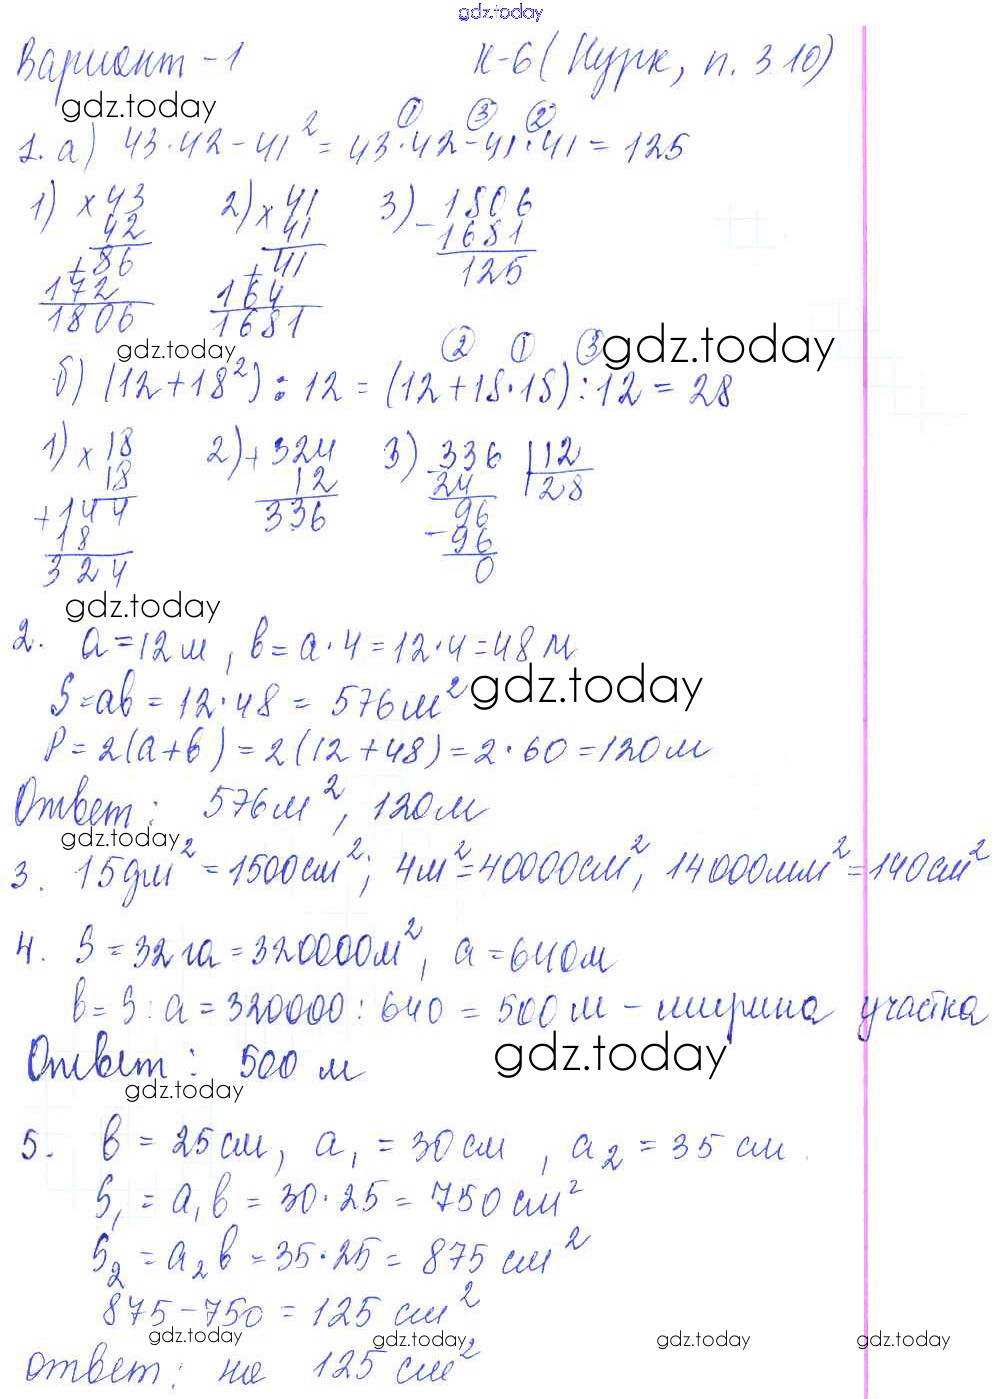 gdz.today
Вариант - 1 К-6 (Нурк, п. 3.10)
gdz.today
① ③ ②
1. а) 43·42 - 41² = 43·42 - 41·41 = 125
1) × 43 2) × 41 3) - 1806
42 41 1681
+ 86 + 41 125
172 164
1806 1681
gdz.today ② ① ③ gdz.today
б) (12 + 18²) : 12 = (12 + 18·18) : 12 = 28
1) × 18 2) + 324 3) 336 | 12
18 12 24 28
+ 144 336 96
18 - 96
324 0
gdz.today
2. a = 12 м, b = a·4 = 12·4 = 48 м
S = ab = 12·48 = 576 м² gdz.today
P = 2(a + b) = 2(12 + 48) = 2·60 = 120 м
Ответ: 576 м², 120 м
gdz.today
3. 15 дм² = 1500 см²; 4 м² = 40000 см², 14000 мм² = 140 см²
4. S = 32 га = 320000 м², a = 640 м
b = S : a = 320000 : 640 = 500 м - ширина участка
Ответ: 500 м gdz.today
gdz.today
5. b = 25 см, a₁ = 30 см, a₂ = 35 см.
S₁ = a₁b = 30·25 = 750 см²
S₂ = a₂b = 35·25 = 875 см²
875 - 750 = 125 см²
gdz.today gdz.today gdz.today gdz.today
ответ: на 125 см²